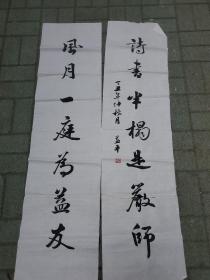 詩書半榻是嚴師
風月一庭為益友
丁丑年仲秋月